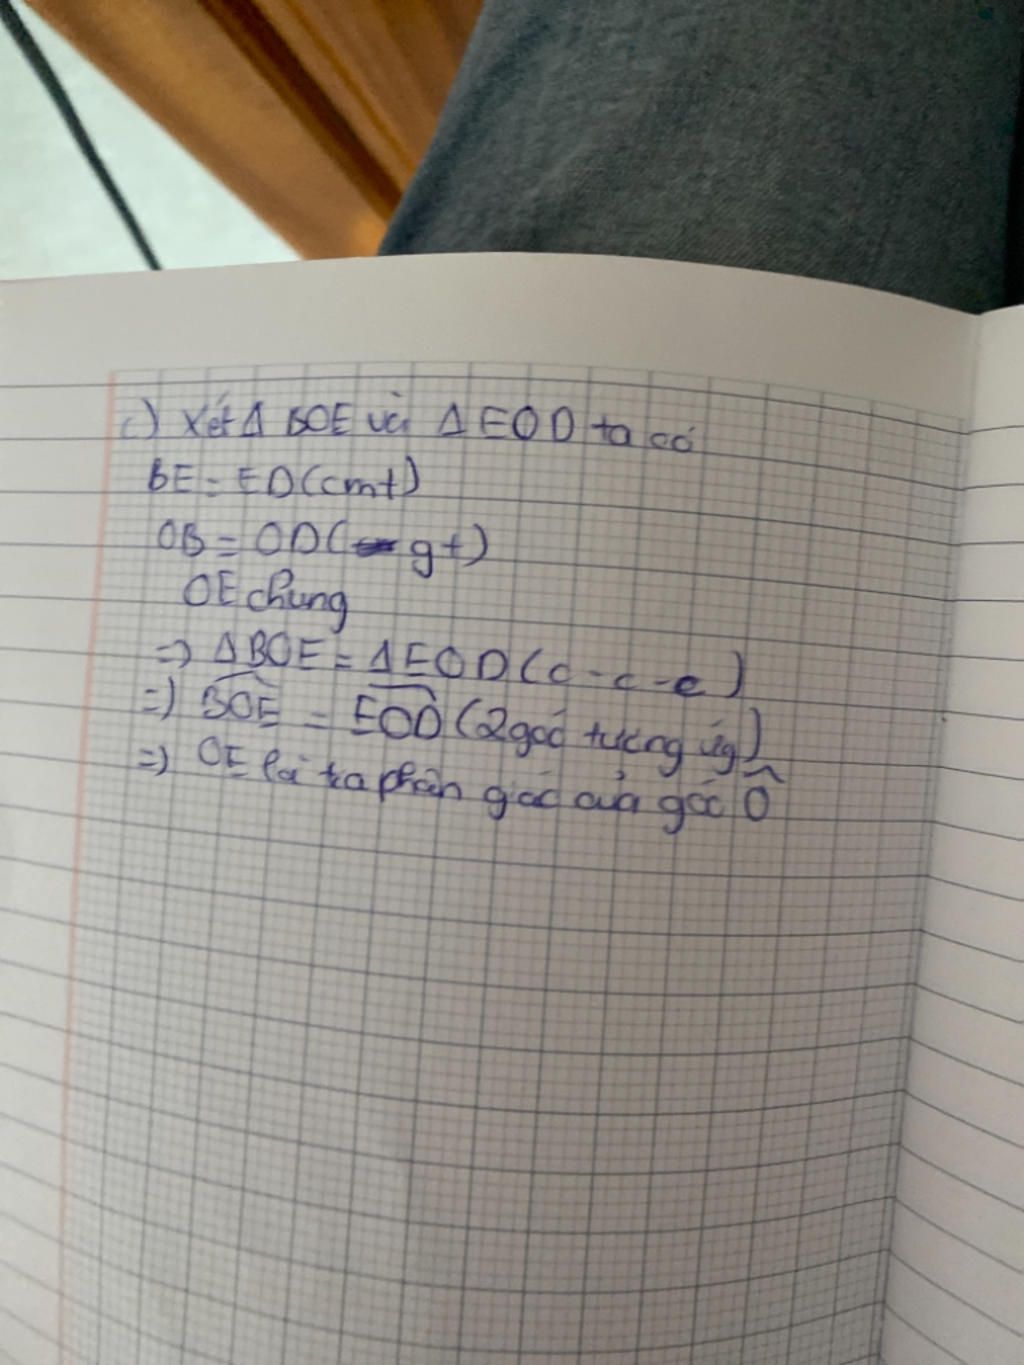 c) Xét Δ BOE và Δ EOD ta có
BE = ED (cmt)
OB = OD ( gt)
OE chung
=> Δ BOE = Δ EOD (c - c - c)
=> BOE = EOD (2 góc tương ứg)
=> OE là tia phân giác của góc Ô